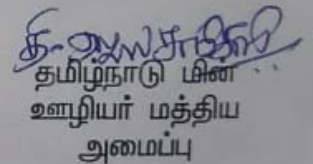 தமிழ்நாடு மின்
ஊழியர் மத்திய
அமைப்பு